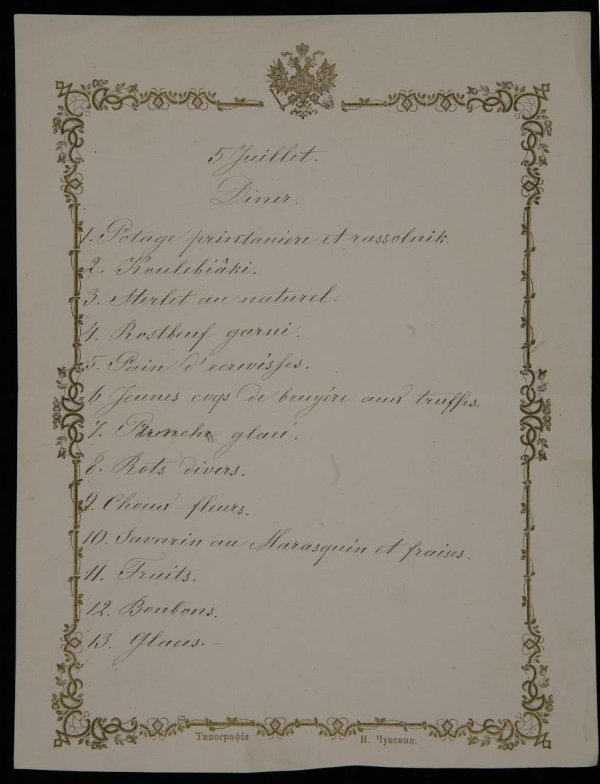 5 Juillet.
Diner.
1. Potage printaniere et rassolnik.
2. Koulebiâki.
3. Sterlet au naturel.
4. Rostbeuf garni.
5. Pain d'ecrevisses.
6 Jeunes coqs de bruyére aux truffes.
7. glacé.
8. Rots divers.
9. Choux-fleurs.
10. Savarin au Marasquin et fraises.
11. Fruits.
12. Bonbons.
13. Glaces.-
Типографія И. Чуксина.